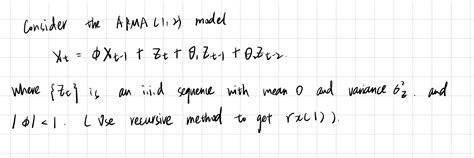 Consider the ARMA(1,2) model
Xt = ϕXt-1 + Zt + θ1Zt-1 + θ2Zt-2.
where {Zt} is an i.i.d sequence with mean 0 and variance σ²z. and
|ϕ| < 1. (Use recursive method to get rx(1)).